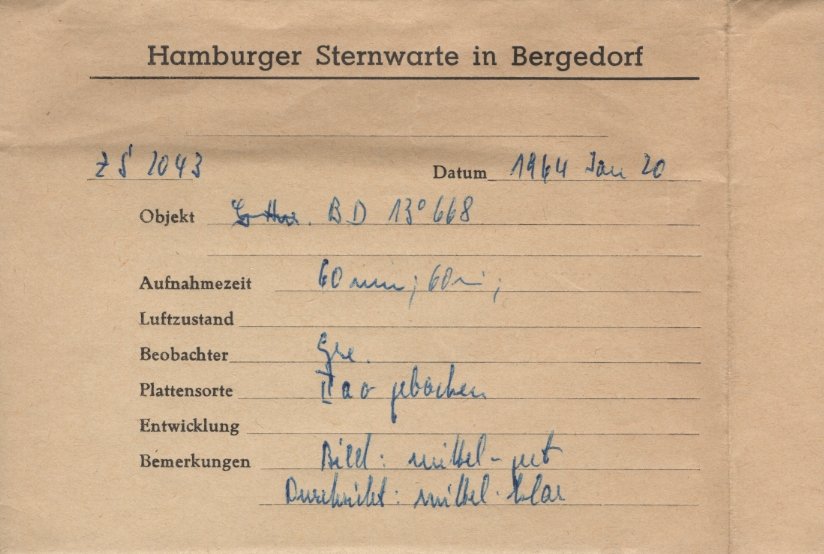 Hamburger Sternwarte in Bergedorf
ZS 2043 Datum 1964 Jan 20
Objekt BD 13° 668
Aufnahmezeit 60 min; 60 min;
Luftzustand
Beobachter
Plattensorte IIa o gebacken
Entwicklung
Bemerkungen Bild: mittel-gut
Durchsicht: mittel-klar